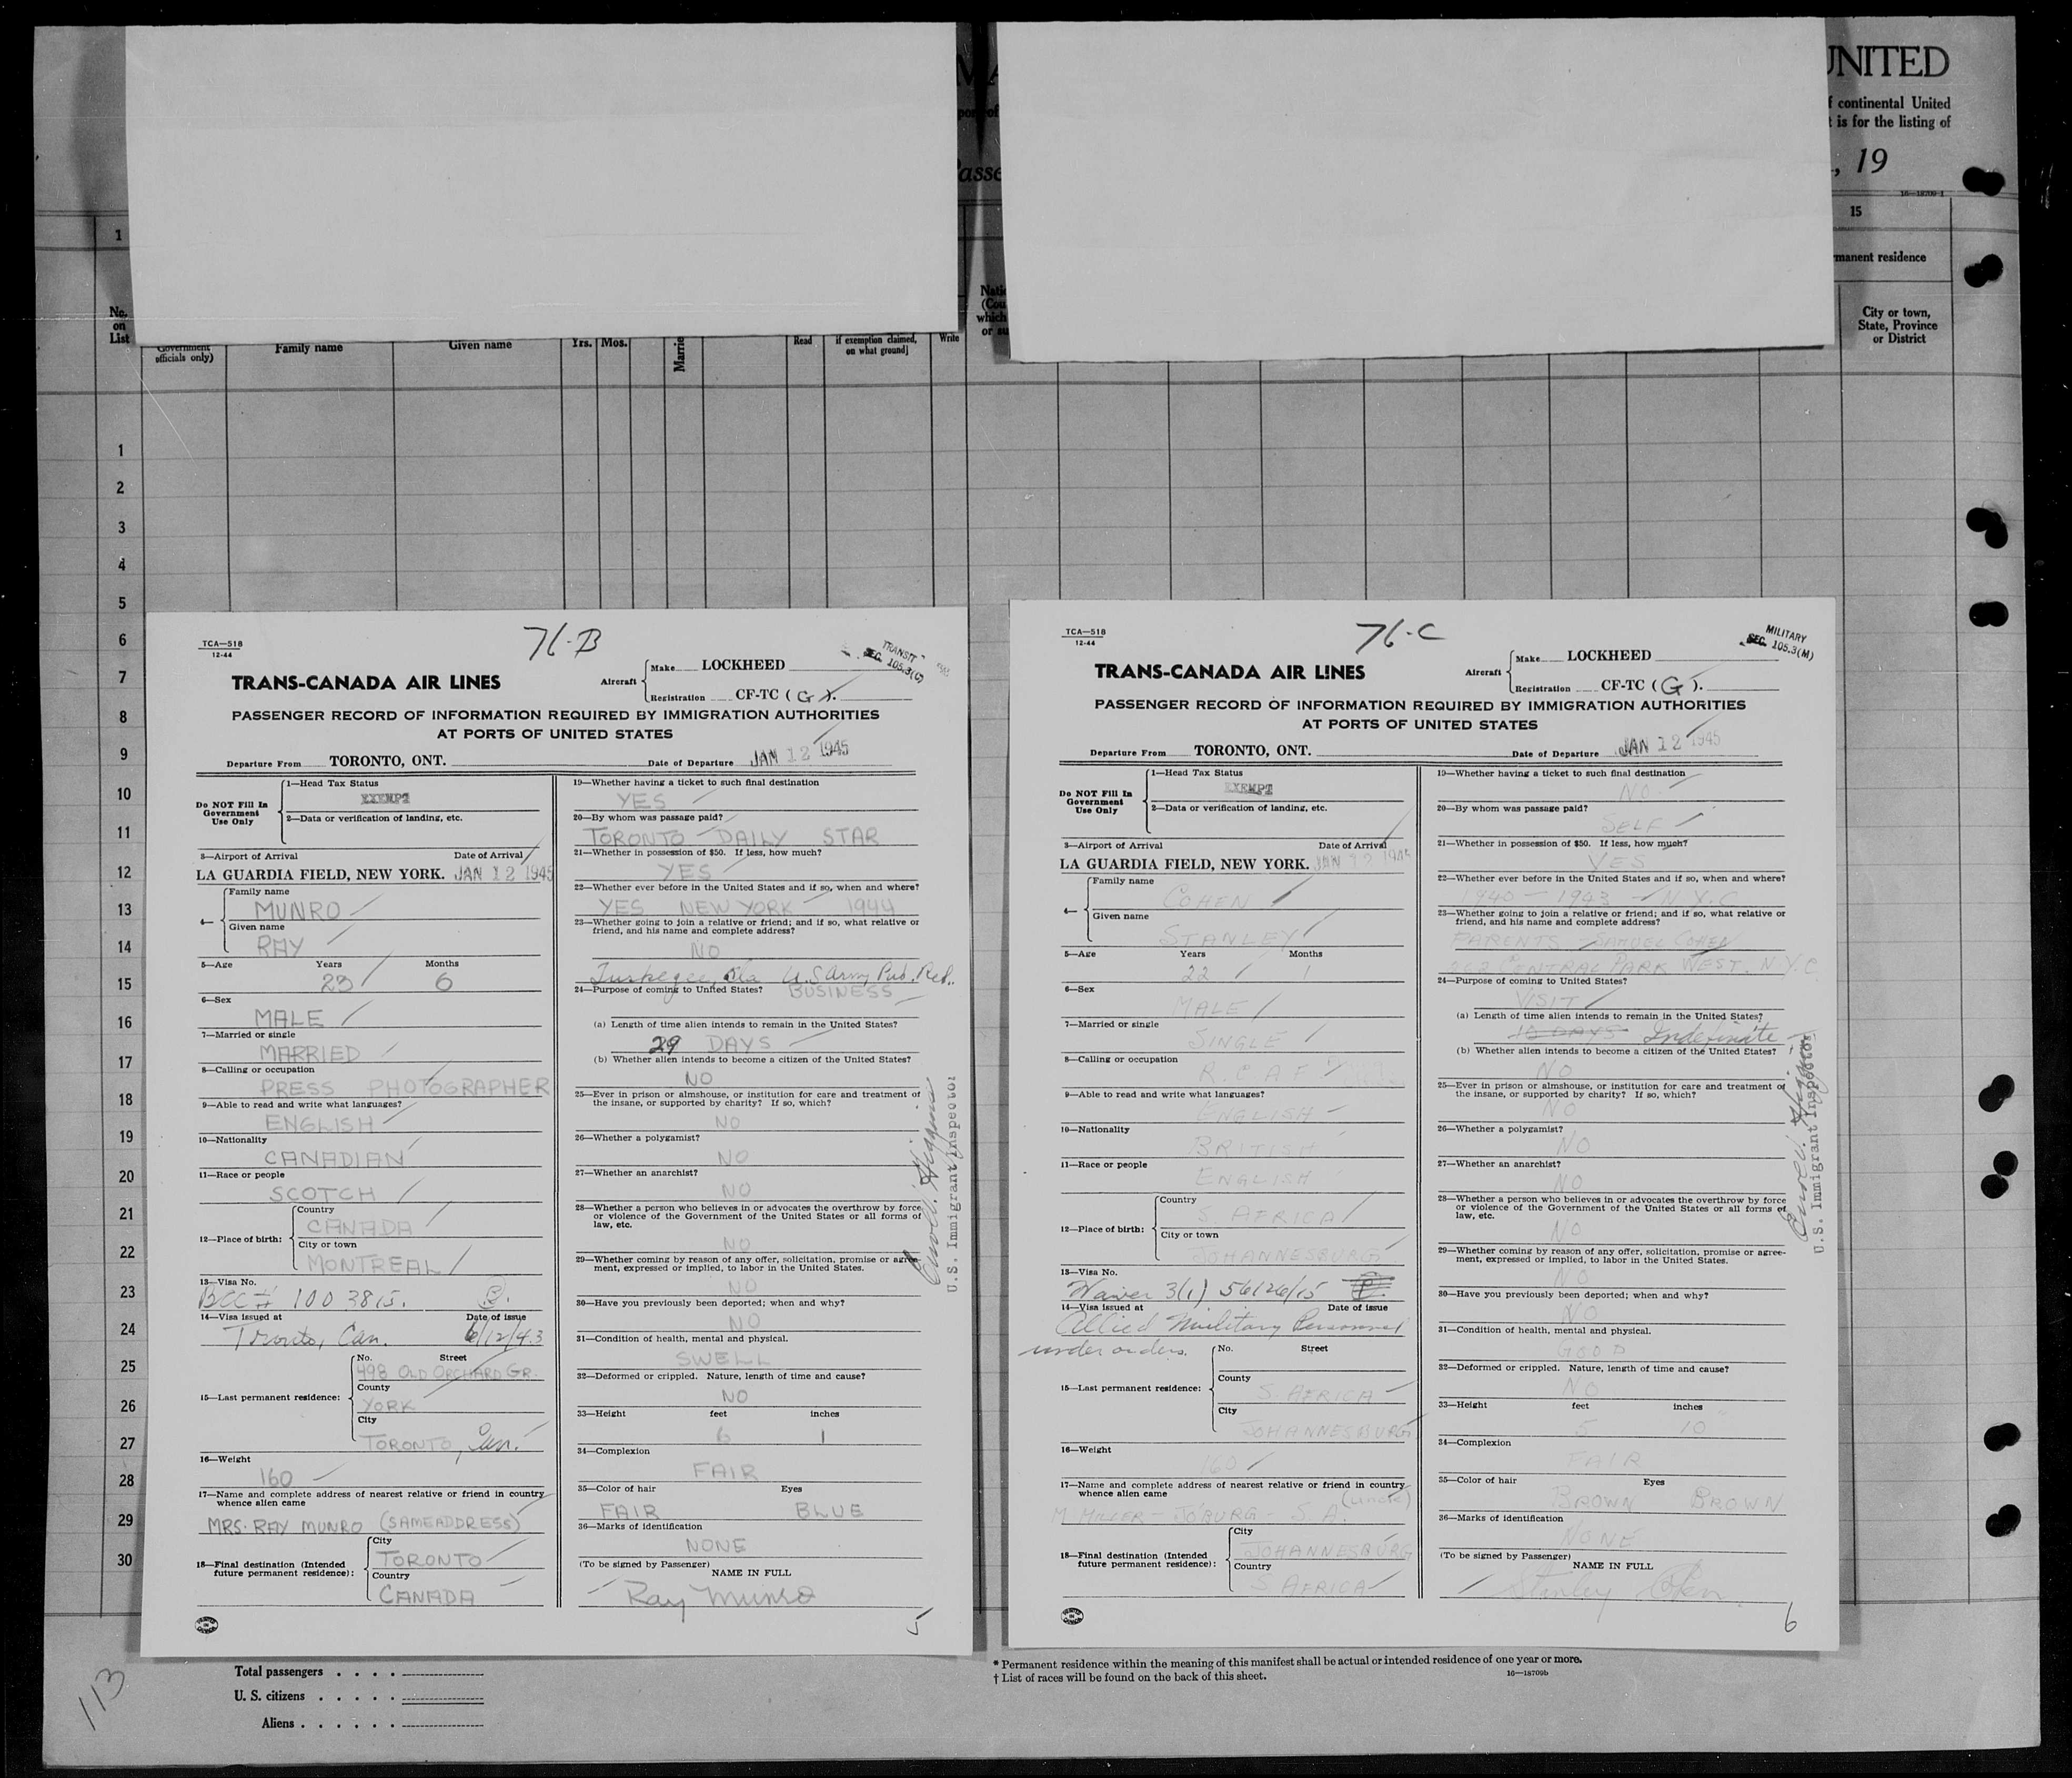 UNITED
continental United
is for the listing of
, 19
16—18709-1
1
15
manent residence
No.
on
List
Government
officials only)
Family name
Given name
Yrs.
Mos.
Read
if exemption claimed,
on what ground]
Write
City or town,
State, Province
or District
1
2
3
4
5
6
7
8
9
10
11
12
13
14
15
16
17
18
19
20
21
22
23
24
25
26
27
28
29
30
TCA—518
12-44
76-B
TRANSIT
SEC. 105.3(G)
TRANS-CANADA AIR LINES
Aircraft
Make LOCKHEED
Registration CF-TC (G).
PASSENGER RECORD OF INFORMATION REQUIRED BY IMMIGRATION AUTHORITIES
AT PORTS OF UNITED STATES
Departure From TORONTO, ONT. Date of Departure JAN 12 1945
Do NOT Fill In
Government
Use Only
1—Head Tax Status
EXEMPT
2—Data or verification of landing, etc.
3—Airport of Arrival Date of Arrival
LA GUARDIA FIELD, NEW YORK. JAN 12 1945
4— Family name
MUNRO
Given name
RAY
5—Age Years Months
23 6
6—Sex
MALE
7—Married or single
MARRIED
8—Calling or occupation
PRESS PHOTOGRAPHER
9—Able to read and write what languages?
ENGLISH
10—Nationality
CANADIAN
11—Race or people
SCOTCH
12—Place of birth:
Country
CANADA
City or town
MONTREAL
13—Visa No.
BCC # 100 3815.
14—Visa issued at Date of issue
Toronto, Can. 6/12/43
15—Last permanent residence:
No. Street
498 OLD ORCHARD GR.
County
YORK
City
TORONTO, Can.
16—Weight
160
17—Name and complete address of nearest relative or friend in country
whence alien came
MRS. RAY MUNRO (SAME ADDRESS)
18—Final destination (Intended
future permanent residence):
City
TORONTO
Country
CANADA
19—Whether having a ticket to such final destination
YES
20—By whom was passage paid?
TORONTO DAILY STAR
21—Whether in possession of $50. If less, how much?
YES
22—Whether ever before in the United States and if so, when and where?
YES NEW YORK 1944
23—Whether going to join a relative or friend; and if so, what relative or
friend, and his name and complete address?
NO
Tuskegee, Ala U.S Army Pub. Rel.
24—Purpose of coming to United States? BUSINESS
(a) Length of time alien intends to remain in the United States?
29 DAYS
(b) Whether alien intends to become a citizen of the United States?
NO
25—Ever in prison or almshouse, or institution for care and treatment of
the insane, or supported by charity? If so, which?
NO
26—Whether a polygamist?
NO
27—Whether an anarchist?
NO
28—Whether a person who believes in or advocates the overthrow by force
or violence of the Government of the United States or all forms of
law, etc.
NO
29—Whether coming by reason of any offer, solicitation, promise or agree-
ment, expressed or implied, to labor in the United States.
NO
30—Have you previously been deported; when and why?
NO
31—Condition of health, mental and physical.
SWELL
32—Deformed or crippled. Nature, length of time and cause?
NO
33—Height feet inches
6 1
34—Complexion
FAIR
35—Color of hair Eyes
FAIR BLUE
36—Marks of identification
NONE
(To be signed by Passenger)
NAME IN FULL
Ray Munro
U.S. Immigrant Inspector
5
TCA—518
12-44
76-C
MILITARY
SEC. 105.3(M)
TRANS-CANADA AIR LINES
Aircraft
Make LOCKHEED
Registration CF-TC (G).
PASSENGER RECORD OF INFORMATION REQUIRED BY IMMIGRATION AUTHORITIES
AT PORTS OF UNITED STATES
Departure From TORONTO, ONT. Date of Departure JAN 12 1945
Do NOT Fill In
Government
Use Only
1—Head Tax Status
EXEMPT
2—Data or verification of landing, etc.
3—Airport of Arrival Date of Arrival
LA GUARDIA FIELD, NEW YORK. JAN 12 1945
4— Family name
COHEN
Given name
STANLEY
5—Age Years Months
22 1
6—Sex
MALE
7—Married or single
SINGLE
8—Calling or occupation
R C A F
9—Able to read and write what languages?
ENGLISH
10—Nationality
BRITISH
11—Race or people
ENGLISH
12—Place of birth:
Country
S. AFRICA
City or town
JOHANNESBURG
13—Visa No.
Waiver 3(1) 56126/15
14—Visa issued at Date of issue
Allied Military Personnel
under orders.
15—Last permanent residence:
No. Street
County
S. AFRICA
City
JOHANNESBURG
16—Weight
160
17—Name and complete address of nearest relative or friend in country
whence alien came (uncle)
M. MILLER — JO'BURG - S. A.
18—Final destination (Intended
future permanent residence):
City
JOHANNESBURG
Country
S. AFRICA
19—Whether having a ticket to such final destination
NO
20—By whom was passage paid?
SELF
21—Whether in possession of $50. If less, how much?
YES
22—Whether ever before in the United States and if so, when and where?
1940 — 1943 — N.Y.C
23—Whether going to join a relative or friend; and if so, what relative or
friend, and his name and complete address?
PARENTS SAMUEL COHEN
CENTRAL PARK WEST. N.Y.C
24—Purpose of coming to United States?
VISIT
(a) Length of time alien intends to remain in the United States?
10 DAYS Indefinite
(b) Whether alien intends to become a citizen of the United States?
NO
25—Ever in prison or almshouse, or institution for care and treatment of
the insane, or supported by charity? If so, which?
NO
26—Whether a polygamist?
NO
27—Whether an anarchist?
NO
28—Whether a person who believes in or advocates the overthrow by force
or violence of the Government of the United States or all forms of
law, etc.
NO
29—Whether coming by reason of any offer, solicitation, promise or agree-
ment, expressed or implied, to labor in the United States.
NO
30—Have you previously been deported; when and why?
NO
31—Condition of health, mental and physical.
GOOD
32—Deformed or crippled. Nature, length of time and cause?
NO
33—Height feet inches
5 10
34—Complexion
FAIR
35—Color of hair Eyes
BROWN BROWN
36—Marks of identification
NONE
(To be signed by Passenger)
NAME IN FULL
Stanley Cohen.
U.S. Immigrant Inspector
6
113
Total passengers . . . .
U. S. citizens . . . . .
Aliens . . . . . .
* Permanent residence within the meaning of this manifest shall be actual or intended residence of one year or more.
† List of races will be found on the back of this sheet.
16—18709b